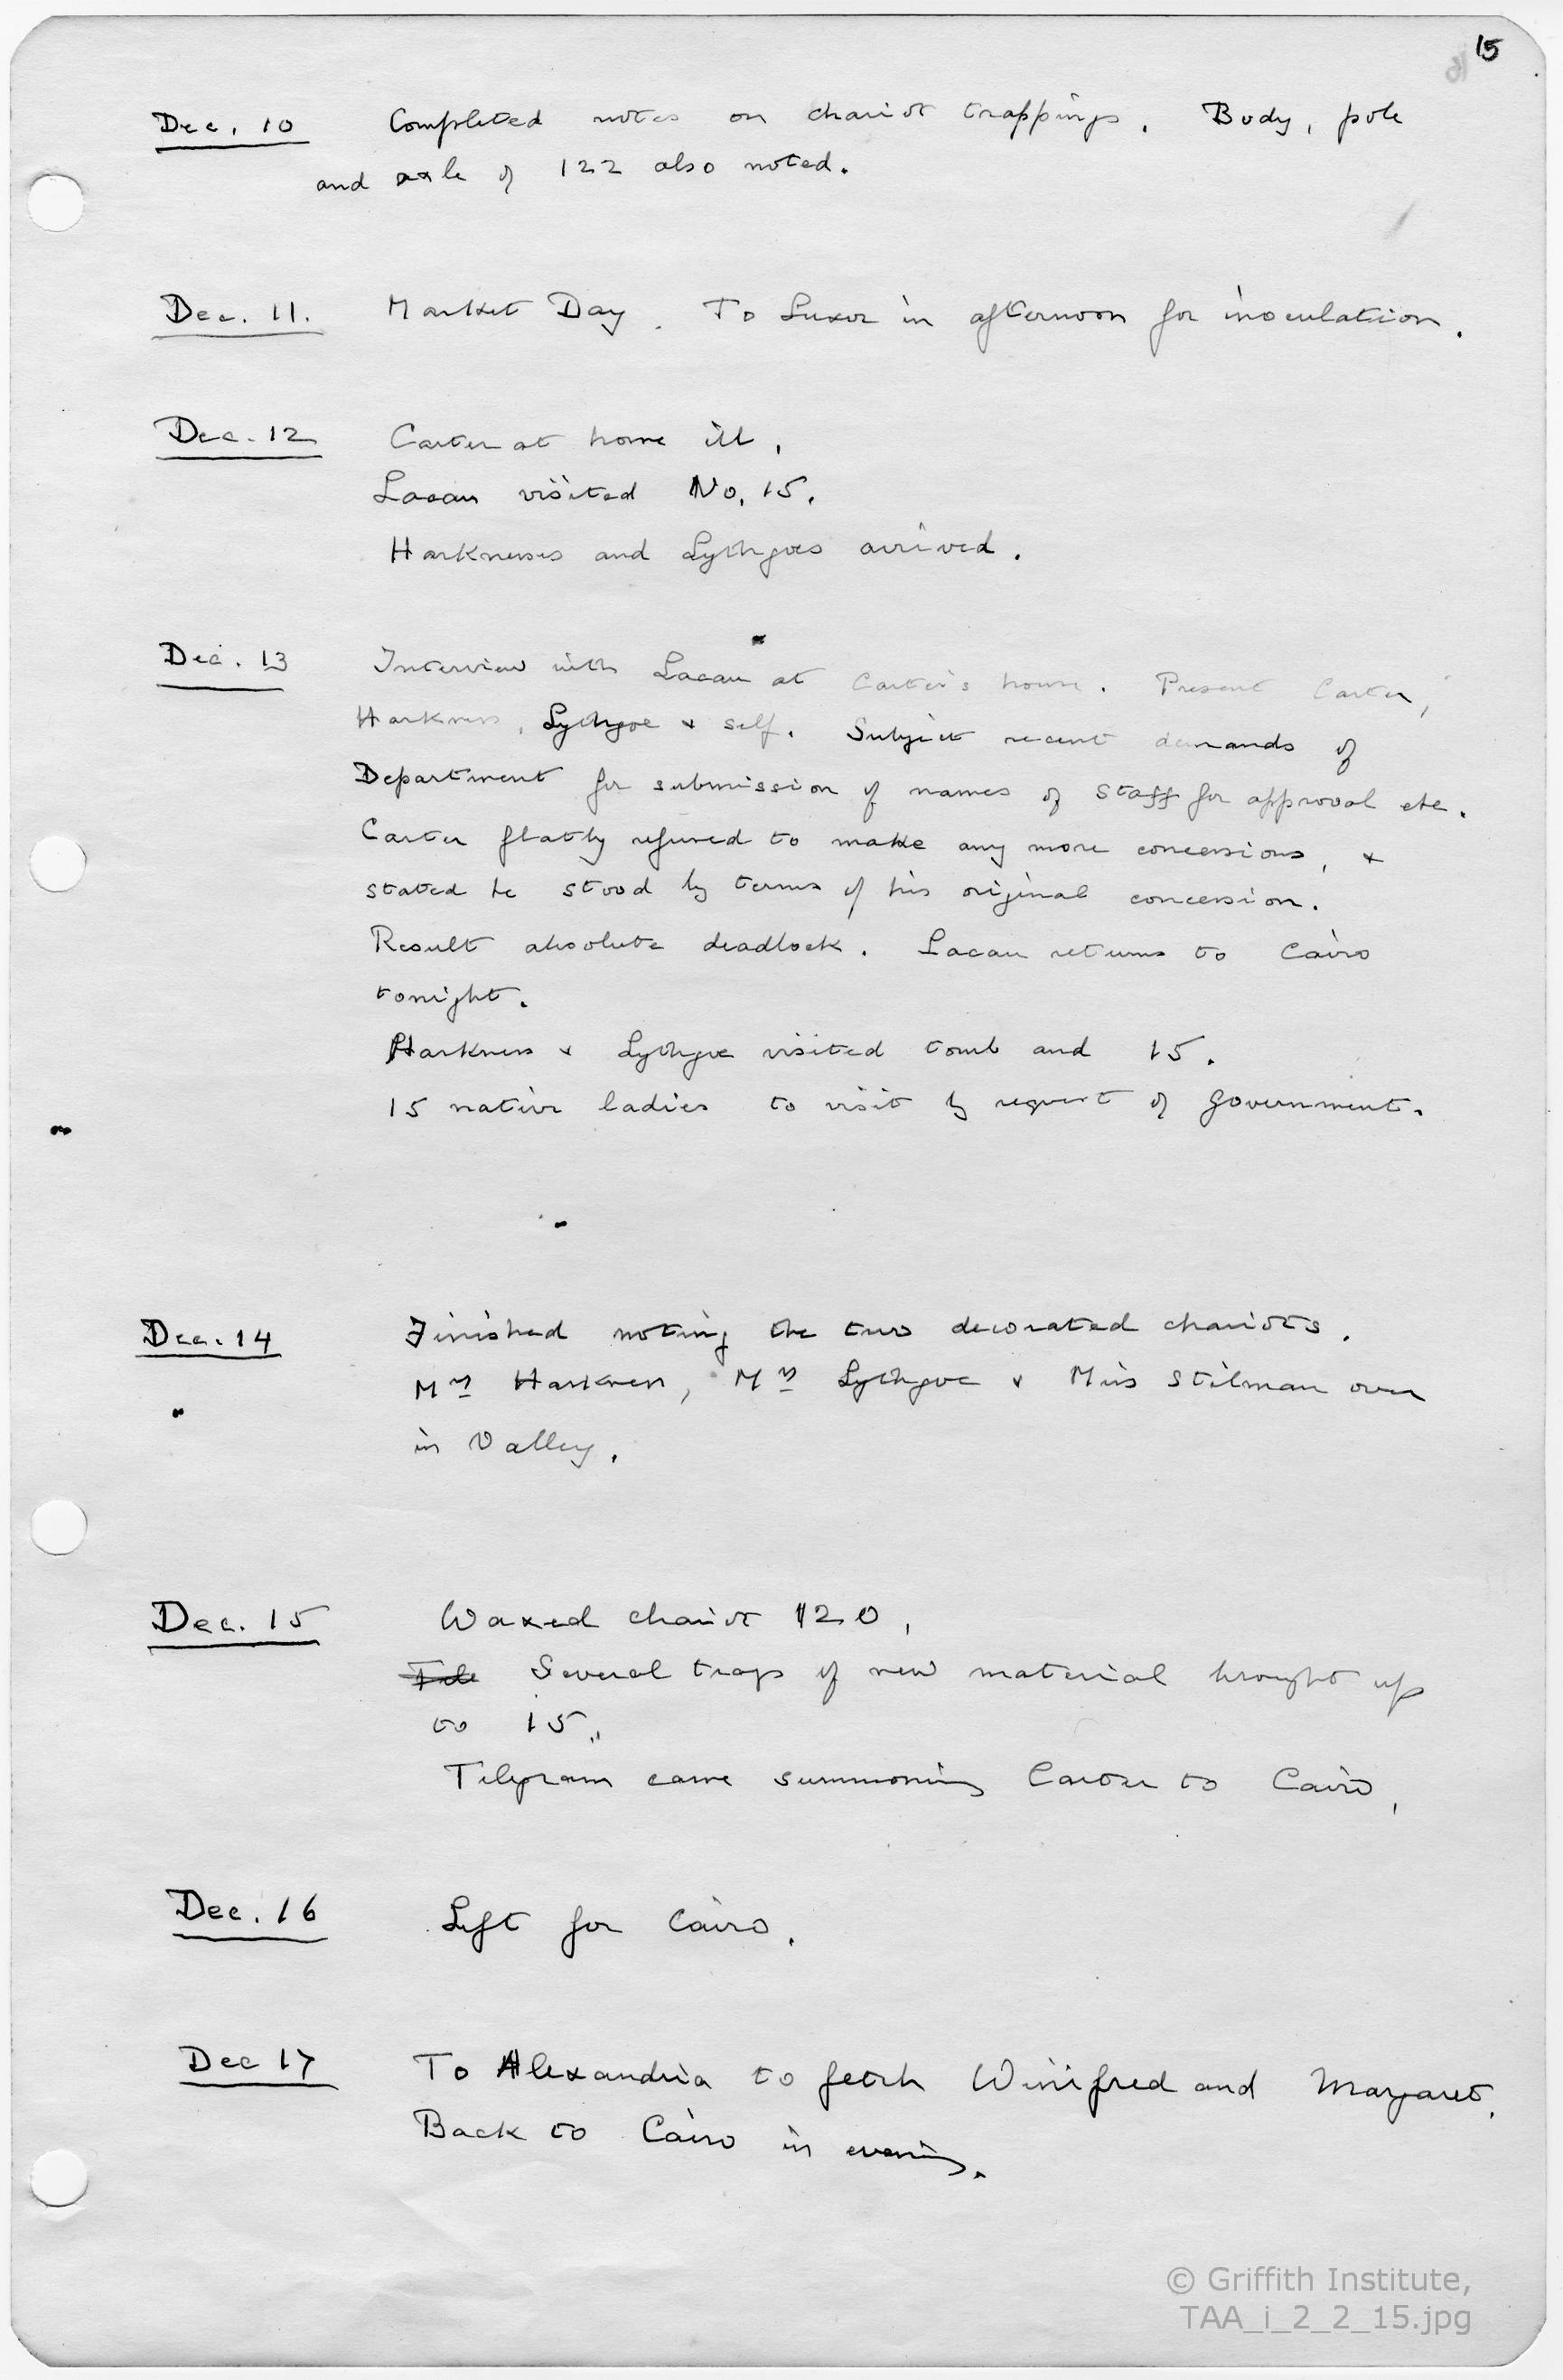 15
Dec. 10 Completed notes on chariot trappings. Body, pole
and axle of 122 also noted.
Dec. 11. Market Day. To Luxor in afternoon for inoculation.
Dec. 12 Carter at home ill.
Lacau visited No. 15.
Harknesses and Lythgoes arrived.
Dec. 13 Interview with Lacau at Carter's house. Present Carter,
Harkness, Lythgoe & self. Subject recent demands of
Department for submission of names of staff for approval etc.
Carter flatly refused to make any more concessions, &
stated he stood by terms of his original concession.
Result absolute deadlock. Lacau returns to Cairo
tonight.
Harkness & Lythgoe visited tomb and 15.
15 native ladies to visit by request of Government.
Dec. 14 Finished noting the two decorated chariots.
Mrs Harkness, Mrs Lythgoe & Miss Stilman over
in Valley.
Dec. 15 Waxed chariot 120.
Several trays of new material brought up
to 15.
Telegram came summoning Carter to Cairo.
Dec. 16 Left for Cairo.
Dec 17 To Alexandria to fetch Winifred and Margaret.
Back to Cairo in evening.
© Griffith Institute,
TAA_i_2_2_15.jpg